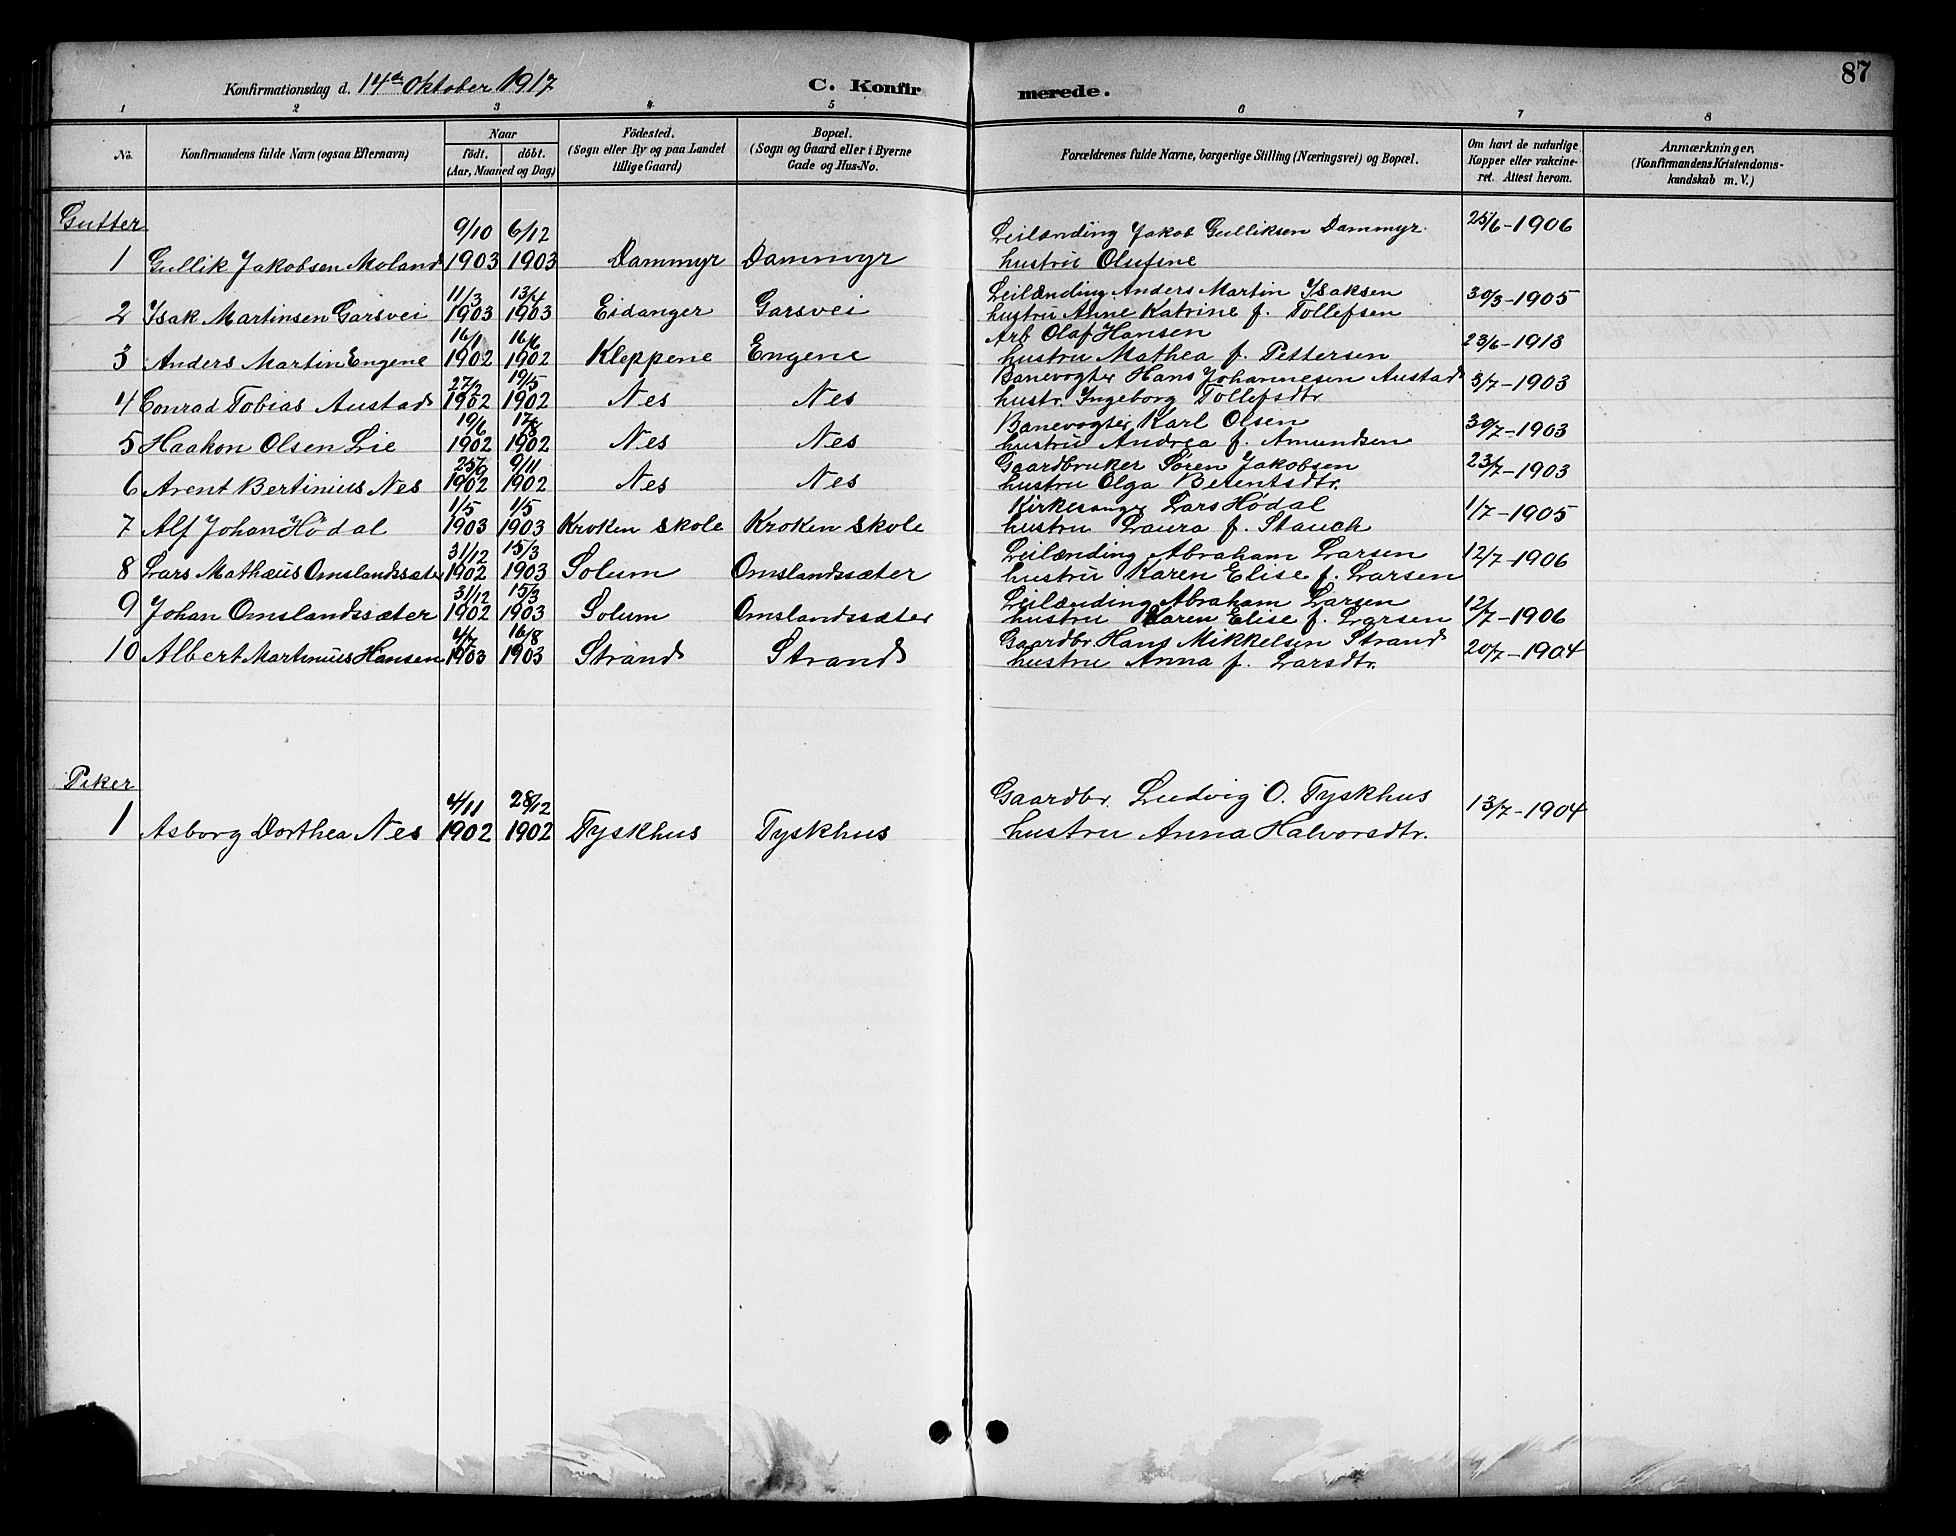 87
Konfirmationsdag d. 14de Oktober 1917 C. Konfirmerede.
1 2 3 4 5 6 7 8
No. Konfirmandens fulde Navn (ogsaa Efternavn) Naar födt. döbt. (Aar, Maaned og Dag) Födested. (Sogn eller By og paa Landet tillige Gaard) Bopæl. (Sogn og Gaard eller i Byerne Gade og Hus-No. Forældrenes fulde Navne, borgerlige Stilling (Næringsvei) og Bopæl. Om havt de naturlige Kopper eller vakcineret. Attest herom. Anmærkninger, (Konfirmandens Kristendomskundskab m. V.)
Gutter
1 Gullik Jakobsen Moland 9/10 1903 6/12 1903 Dammyr Dammyr Leilænding Jakob Gulliksen Dammyr. hustru Olufine 25/6-1906
2 Isak Martinsen Garsvei 11/3 1903 13/4 1903 Eidanger Garsvei Leilænding Anders Martin Isaksen hustru Anne Katrine f. Tollefsen 30/3-1905
3 Anders Martin Engene 16/1 1902 16/6 1902 Kleppene Engene Arb Olaf Hansen hustru Mathea f. Pettersen 23/6-1913
4 Conrad Tobias Austad 27/2 1902 19/5 1902 Nes Nes Banevogter Hans Johannesen Austad hustr. Ingeborg Tollefsdtr 3/7-1903
5 Haakon Olsen Lie 19/6 1902 17/8 1902 Nes Nes Banevogter Karl Olsen hustru Andrea f. Amundsen 30/7-1903
6 Arent Bertinius Nes 25/9 1902 9/11 1902 Nes Nes Gaardbruker Sören Jakobsen hustru Olga 23/7-1903
7 Alf Johan Hödal 1/5 1903 1/5 1903 Kroken skole Kroken skole Kirkesanger Lars Hödal hustru Laura f. Stauch 1/7-1905
8 Lars Mathæus Omslandssæter 31/12 1902 15/3 1903 Solum Omslandssæter Leilænding Abraham Larsen hustru Karen Elise f. Larsen 12/7-1906
9 Johan Omslandssæter 31/12 1902 15/3 1903 Solum Omslandssæter Leilænding Abraham Larsen hustru Karen Elise f. Larsen 12/7-1906
10 Albert Martinius Hansen 4/7 1903 16/8 1903 Strand Strand Gaardbr. Hans Mikkelsen Strand hustru Anna f. Larsdtr. 20/7-1904
Piker
1 Asborg Dorthea Nes 4/11 1902 28/12 1902 Tyskhus Tyskhus Gaardbr. Ludvig O. Tyskhus hustru Anna Halvorsdtr. 13/7-1904